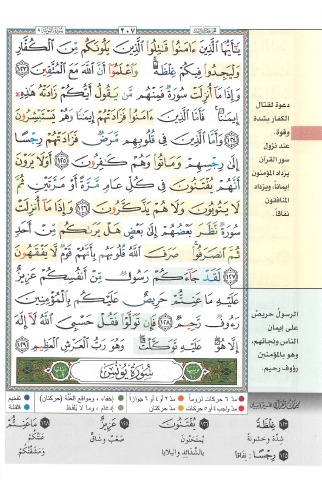 سورة التوبة ٩
٢٠٧
يَٰٓأَيُّهَا ٱلَّذِينَ ءَامَنُواْ قَٰتِلُواْ ٱلَّذِينَ يَلُونَكُم مِّنَ ٱلْكُفَّارِ
وَلْيَجِدُواْ فِيكُمْ غِلْظَةً وَٱعْلَمُوٓاْ أَنَّ ٱللَّهَ مَعَ ٱلْمُتَّقِينَ ١٢٣
وَإِذَا مَآ أُنزِلَتْ سُورَةٌ فَمِنْهُم مَّن يَقُولُ أَيُّكُمْ زَادَتْهُ هَٰذِهِۦٓ
إِيمَٰنًا فَأَمَّا ٱلَّذِينَ ءَامَنُواْ فَزَادَتْهُمْ إِيمَٰنًا وَهُمْ يَسْتَبْشِرُونَ
١٢٤ وَأَمَّا ٱلَّذِينَ فِى قُلُوبِهِم مَّرَضٌ فَزَادَتْهُمْ رِجْسًا
إِلَىٰ رِجْسِهِمْ وَمَاتُواْ وَهُمْ كَٰفِرُونَ ١٢٥ أَوَلَا يَرَوْنَ
أَنَّهُمْ يُفْتَنُونَ فِى كُلِّ عَامٍ مَّرَّةً أَوْ مَرَّتَيْنِ ثُمَّ
لَا يَتُوبُونَ وَلَا هُمْ يَذَّكَّرُونَ ١٢٦ وَإِذَا مَآ أُنزِلَتْ
سُورَةٌ نَّظَرَ بَعْضُهُمْ إِلَىٰ بَعْضٍ هَلْ يَرَىٰكُم مِّنْ أَحَدٍ
ثُمَّ ٱنصَرَفُواْ صَرَفَ ٱللَّهُ قُلُوبَهُم بِأَنَّهُمْ قَوْمٌ لَّا يَفْقَهُونَ
١٢٧ لَقَدْ جَآءَكُمْ رَسُولٌ مِّنْ أَنفُسِكُمْ عَزِيزٌ
عَلَيْهِ مَا عَنِتُّمْ حَرِيصٌ عَلَيْكُم بِٱلْمُؤْمِنِينَ
رَءُوفٌ رَّحِيمٌ ١٢٨ فَإِن تَوَلَّوْاْ فَقُلْ حَسْبِىَ ٱللَّهُ لَآ إِلَٰهَ
إِلَّا هُوَ عَلَيْهِ تَوَكَّلْتُ وَهُوَ رَبُّ ٱلْعَرْشِ ٱلْعَظِيمِ ١٢٩
سُورَةُ يُونُسَ
دعوة لقتال
الكفار بشدة
وقوة.
عند نزول
سور القرآن
يزداد المؤمنون
إيماناً، ويزداد
المنافقون
نفاقاً.
الرسول حريص
على إيمان
الناس ونجاتهم،
وهو بالمؤمنين
رؤوف رحيم.
مدّ ٦ حركات لزوماً
مدّ ٢ أو ٤ أو ٦ جوازاً
إخفاء، ومواقع الغنّة (حركتان)
تفخيم
مدّ واجب ٤ أو ٥ حركات
مدّ حركتان
إدغام، وما لا يُلفظ
قلقلة
١٢٣ غِلْظَةً
شِدَّةً وخشونةً
١٢٥ رِجْسًا: نِفاقاً
١٢٦ يُفْتَنُونَ
يُمْتَحَنُونَ
بالشدائد والبلايا
١٢٨ عَزِيزٌ
صَعْبٌ وشاقٌّ
١٢٨ مَا عَنِتُّمْ
عَنَتُكُمْ
ومَشَقَّتُكُمْ